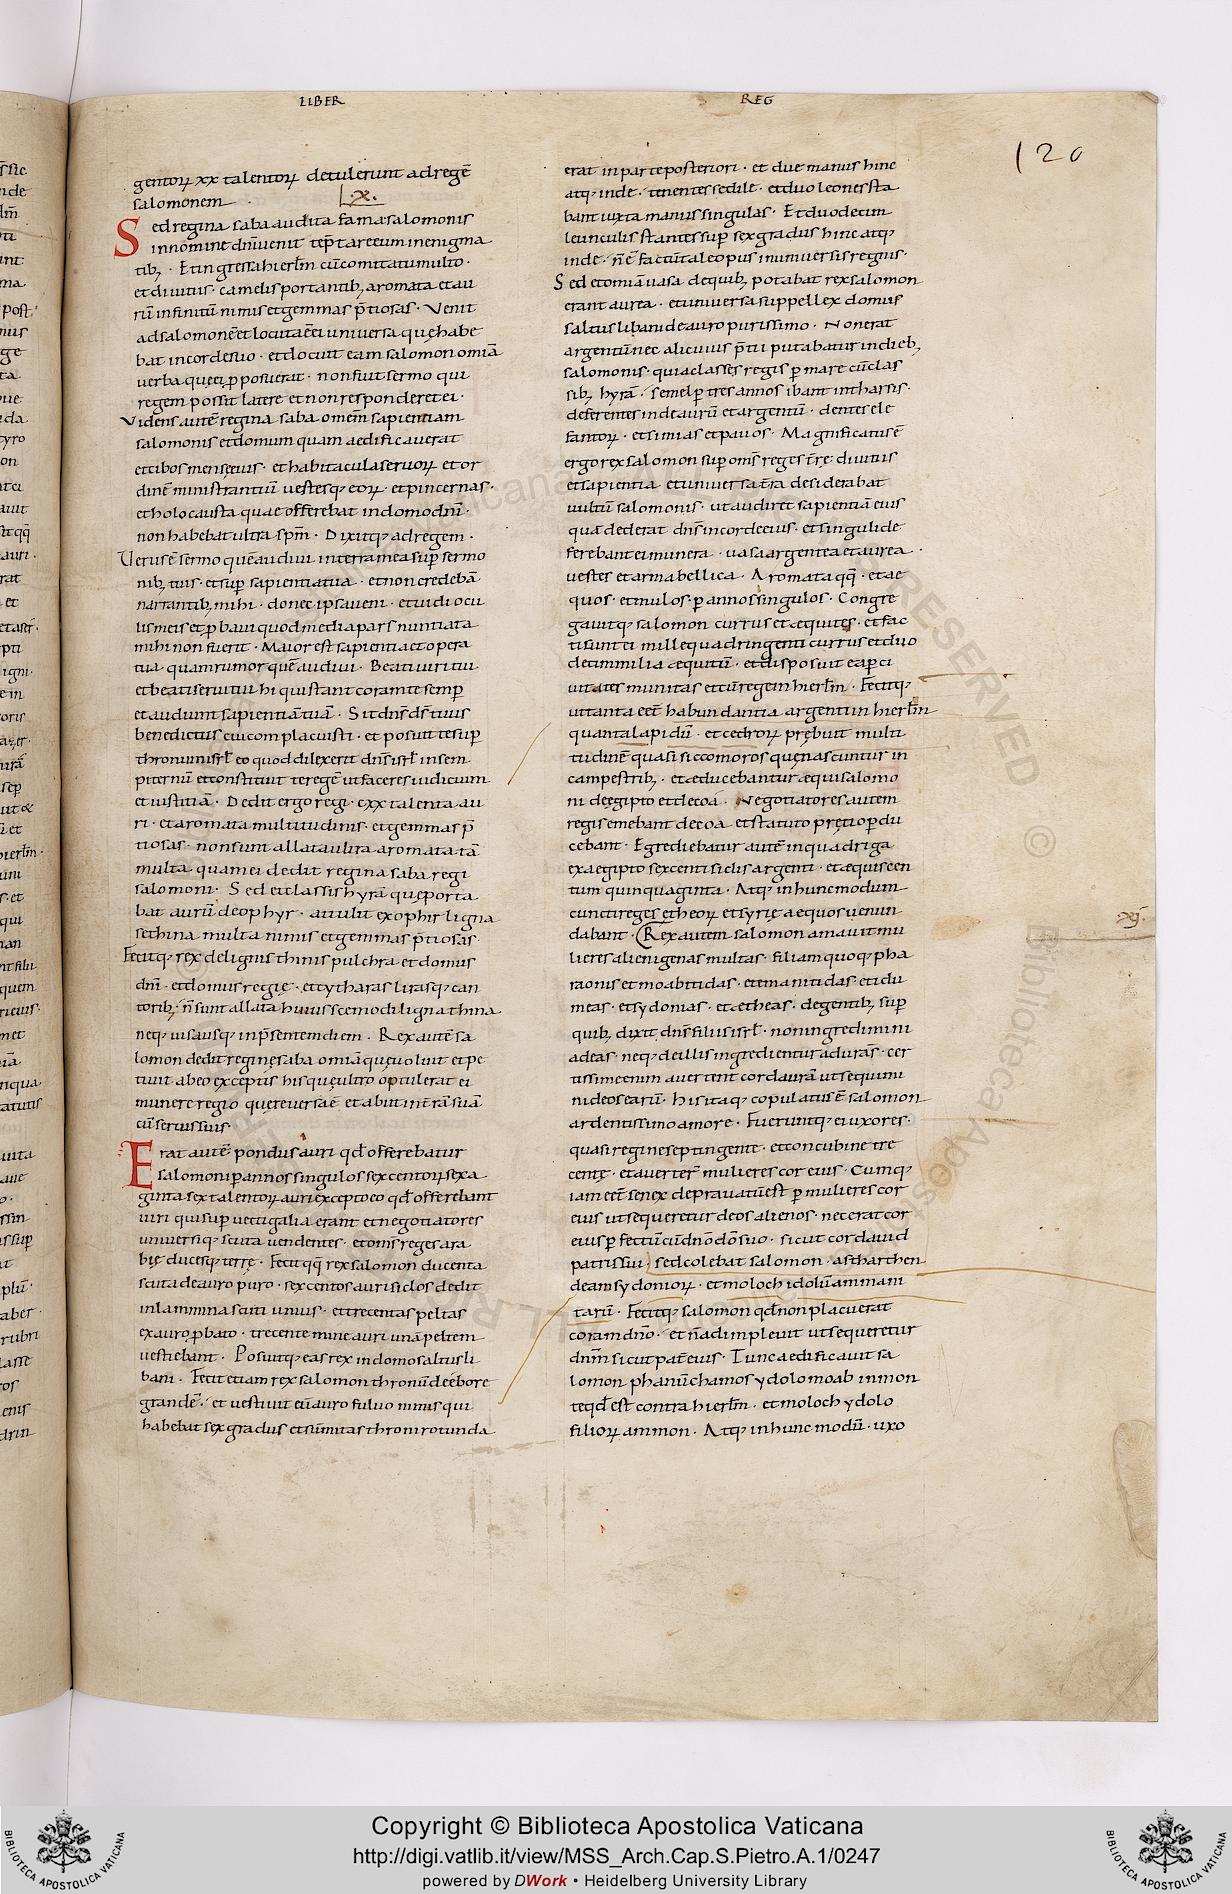 LIBER
REG
120
gentoꝝ xx talentoꝝ detulerunt ad regē
salomonem ·
·x·
Sed regina saba audita fama salomonis
in nomine dnī uenit tēptare eum in enigma
tib; · Et ingressa hierłm cū comitatu multo ·
et diuitiis · camelis portantib; aromata et au
rū infinitū nimis et gemmas p̄tiosas · Venit
ad salomonē et locuta ē ei uniuersa quę habe
bat in corde suo · et docuit eam salomon om̄ia
uerba que ei ꝓposuerat · non fuit sermo qui
regem possit latere et non responderet ei ·
Videns autē regina saba omēm sapientiam
salomonis et domum quam aedificauerat
et cibos mensę eius · et habitacula seruoꝝ et or
dinē ministrantiū uestesq; eoꝝ · et pincernas ·
et holocausta quae offerebat in domo dnī ·
non habebat ultra spm̄ · Dixitq; ad regem ·
Verus ē sermo quē audiui in terra mea suꝑ sermo
nib; tuis · et suꝑ sapientia tua · et non credebā
narrantib; mihi · donec ipsa ueni · et uidi ocu
lis meis et ꝓbaui quod media pars nuntiata
mihi non fuerit · Maior est sapientia et opera
tua quam rumor quē audiui · Beati uiri tui
et beati serui tui hi qui stant coram te semꝑ
et audiunt sapientiā tuā · Sit dns̄ ds̄ tuus
benedictus cui complacuisti · et posuit te suꝑ
thronum isrł eo quod dilexerit dns̄ isrł in sem
piternū et constituit te regē ut faceres iudicium
et iustitiā · Dedit ergo regi · cxx talenta au
ri · et aromata multitudinis · et gemmas p̄
tiosas · non sunt allata ultra aromata tā
multa quam ei dedit regina saba regi
salomoni · Sed et classis hyrā quę porta
bat aurū de ophyr · attulit ex ophir ligna
sethina multa nimis et gemmas p̄tiosas ·
Fecitq; rex de lignis thinis pulchra et domus
dnī · et domus regię · et cytharas lirasq; can
torib; · n̄ sunt allata huiuscemodi ligna thina
neq; uisa usq; in p̄sentem diem · Rex autē sa
lomon dedit reginę saba om̄ia quę uoluit et pe
tiuit ab eo exceptis his quę ultro optulerat ei
munere regio quę reuersa ē et abiit in trā̄ suā
cū seruis suis ·
Erat autē pondus auri qđ offerebatur
salomoni ꝑ annos singulos sexcentoꝝ sexa
ginta sex talentoꝝ auri excepto eo qđ offerebant
uiri qui suꝑ uectigalia erant et negotiatores
uniuersiq; scuta uendentes · et oms̄ reges ara
bię ducesq; terrę · Fecit qq; rex salomon ducenta
scuta de auro puro · sexcentos auri siclos dedit
in lammina scuti unius · et trecentas peltas
ex auro ꝓbato · trecente mine auri unā peltem
uestiebant · Posuitq; eas rex in domo saltus li
bani · Fecit etiam rex salomon thronū de ebore
grandē · et uestiuit eū auro fuluo nimis qui
habebat sex gradus et sūmitas throni rotunda
erat in parte posteriori · et due manus hinc
atq; inde · tenentes sedile · et duo leones sta
bant iuxta manus singulas · Et duodecim
leunculi stantes suꝑ sex gradus hinc atq;
inde · n̄ ē factū tale opus in uniuersis regnis ·
Sed et om̄ia uasa de quib; potabat rex salomon
erant aurea · et uniuersa suppellex domus
saltus libani de auro purissimo · Non erat
argentū nec alicuius p̄tii putabatur in dieb;
salomonis · quia classes regis ꝑ mare cū clas
sib; hyrā · semel ꝑ tres annos ibant in tharsis ·
deferentes inde aurū et argentū · dentes ele
fantoꝝ · et simias et pauos · Magnificatus ē
ergo rex salomon suꝑ oms̄ reges tr̄ę diuitiis
et sapientia et uniuersa tr̄a desiderabat
uultū salomonis · ut audiret sapientiā eius
quā dederat dns̄ in corde eius · et singuli de
ferebant ei munera · uasa argentea et aurea ·
uestes et arma bellica · Aromata qq; · et ae
quos · et mulos · ꝑ annos singulos · Congre
gauitq; salomon currus et aequites · et fac
ti sunt ei mille quadringenti currus et duo
decim milia aequitū · et disposuit ea ꝑ ci
uitates munitas et cū rege in hierłm · Fecitq;
ut tanta eēt habundantia argenti in hierłm
quanta lapidū · et cedroꝝ prębuit multi
tudinē quasi siccomoros quę nascuntur in
campestrib; · et aeducebantur aequi salomo
ni de ęgipto et de coa · Negotiatores autem
regis emebant de coa et statuto prętio ꝑdu
cebant · Egrediebatur autē in quadriga
ex aegipto sexcenti siclis argenti · et aequis cen
tum quinquaginta · Atq; in hunc modum
cuncti reges etheoꝝ et syrię aequos uenun
dabant · Rex autem salomon amauit mu
xi
lieres alienigenas multas · filiam quoq; pha
raonis et moabitidas · et emanitidas · et idu
meas · et sydonias · et aetheas · de gentib; suꝑ
quib; dixit dns̄ filiis isrł · non ingredimini
ad eas · neq; de illis ingredientur ad urās̄ · cer
tissime enim auertent cor da urā ut sequimi
ni deos earū · His itaq; copulatus ē salomon
ardentissimo amore · Fueruntq; ei uxores ·
quasi regine septingente · et concubine tre
centę · et auerter̄ mulieres cor eius · Cumq;
iam eēt senex deprauatū est ꝑ mulieres cor
eius ut sequeretur deos alienos · nec erat cor
eius ꝑfectū cū dn̄o dō suo · sicut cor dauid
patris sui · sed colebat salomon · astharthen
deam sydonioꝝ · et moloch idolū ammani
tarū · Fecitq; salomon qđ non placuerat
coram dn̄o · et n̄ adimpleuit ut sequeretur
dnm̄ sicut pat̄ eius · Tunc aedificauit sa
lomon phanū chamos ydolo moab in mon
te qđ est contra hierłm · et moloch ydolo
filioꝝ ammon · Atq; in hunc modū · uxo
Copyright © Biblioteca Apostolica Vaticana
http://digi.vatlib.it/view/MSS_Arch.Cap.S.Pietro.A.1/0247
powered by DWork • Heidelberg University Library